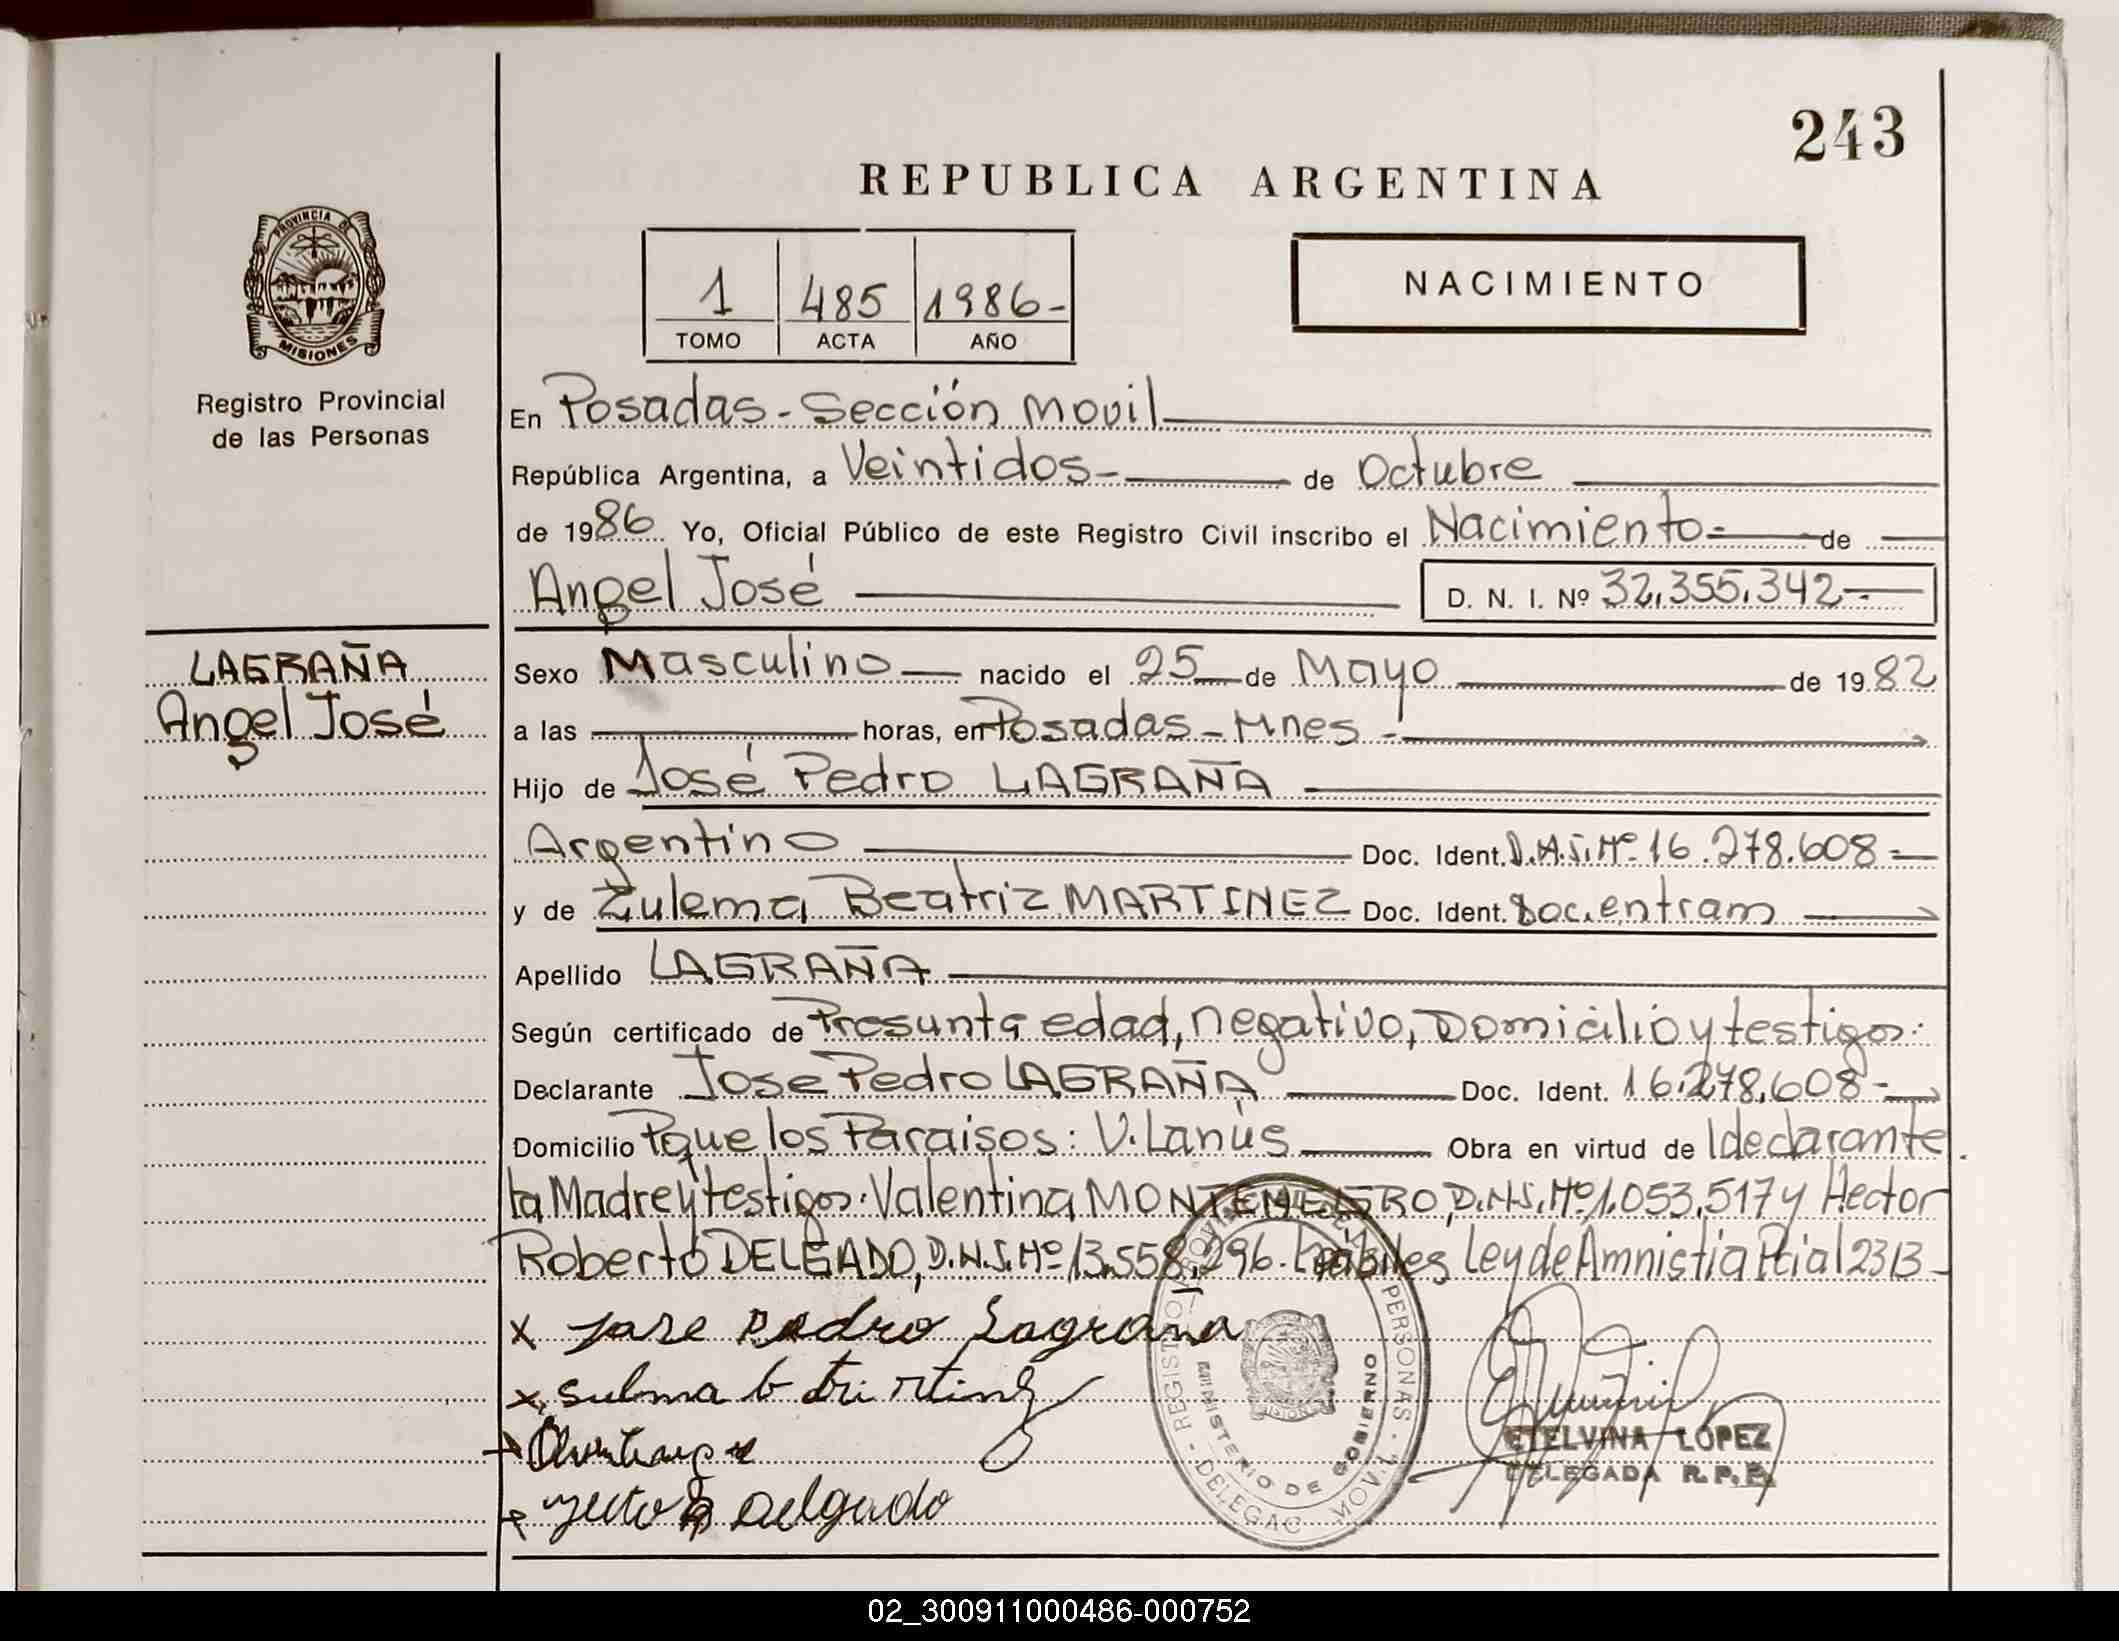 243
REPUBLICA ARGENTINA
PROVINCIA DE
MISIONES
Registro Provincial
de las Personas
1 485 1986-
TOMO ACTA AÑO
NACIMIENTO
En Posadas-Sección Movil
República Argentina, a Veintidos- de Octubre
de 1986 Yo, Oficial Público de este Registro Civil inscribo el Nacimiento de
Angel José D. N. I. Nº 32,355,342-
LAGRAÑA
Angel José
Sexo Masculino nacido el 25 de Mayo de 1982
a las horas, en Posadas-Mnes-
Hijo de José Pedro LAGRAÑA
Argentino Doc. Ident. D.N.I.Nº 16.278.608-
y de Zulema Beatriz MARTINEZ Doc. Ident. Doc. en tram
Apellido LAGRAÑA
Según certificado de Presunta edad, negativo, Domicilio y testigos:
Declarante Jose Pedro LAGRAÑA Doc. Ident. 16.278.608-
Domicilio Pque los Paraisos: V. Lanús Obra en virtud de l declarante
la Madre y testigos: Valentina MONTENEGRO, D.N.I.Nº 1.053.517 y Hector
Roberto DELGADO, D.N.I.Nº 13.558.296. hábiles Ley de Amnistia Pcial 2313-
x Jose Pedro Lagraña
x
Delgado
REGISTRO PROVINCIAL DE LAS PERSONAS - DELEGAC MOVIL
MINISTERIO DE GOBIERNO
ETELVINA LOPEZ
DELEGADA R.P.P.
02_300911000486-000752